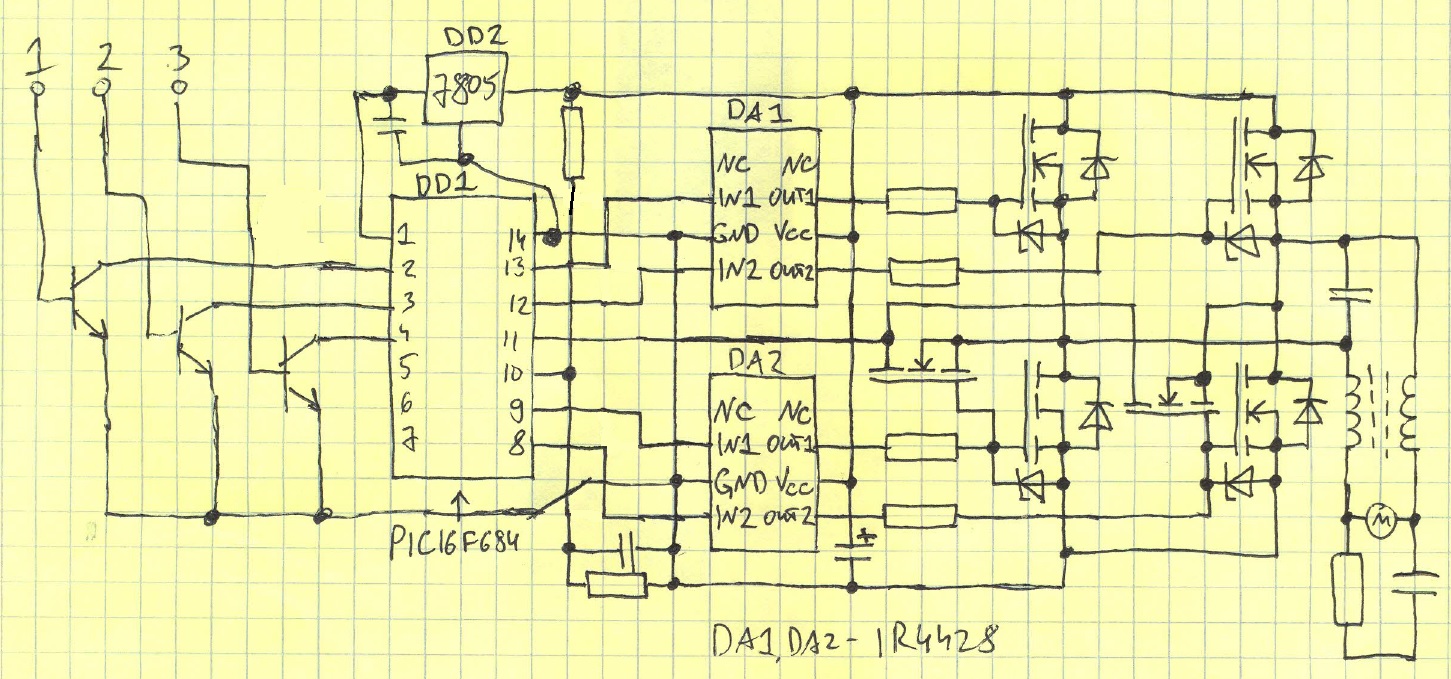 1 2 3
DD2
7805
DD1
1
2
3
4
5
6
7
14
13
12
11
10
9
8
PIC16F684
DA1
NC NC
IN1 OUT1
GND Vcc
IN2 OUT2
DA2
NC NC
IN1 OUT1
GND Vcc
IN2 OUT2
+
M
DA1, DA2 - IR4428